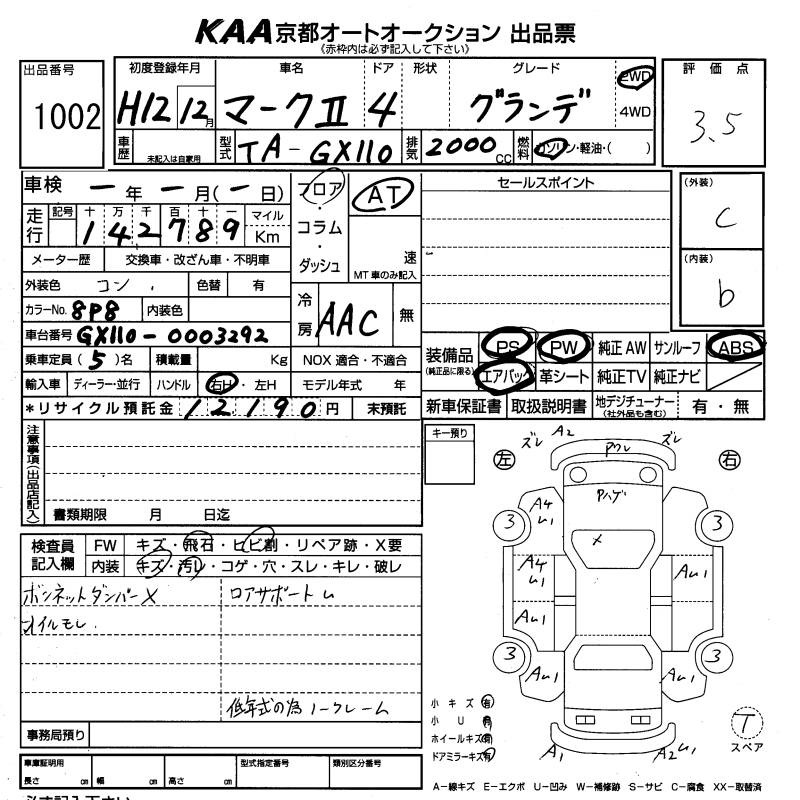 KAA京都オートオークション 出品票
(赤枠内は必ず記入して下さい)
出品番号 1002
初度登録年月 H12 12月
車名 マークⅡ
ドア 4
形状
グレード グランデ
2WD
4WD
評価点 3.5
車歴 未記入は自家用
型式 TA-GX110
排気 2000 CC
燃料 ガソリン・軽油・( )
車検 一年一月(一日)
走行 記号 十 万 千 百 十 一
142789
マイル
Km
メーター歴 交換車・改ざん車・不明車
外装色 コン. 色替 有
カラーNo. 8P8 内装色
車台番号 GX110-0003292
乗車定員(5)名 積載量 Kg
輸入車 ディーラー・並行 ハンドル 右H・左H
*リサイクル預託金 12190円 未預託
フロア・コラム・ダッシュ
AT
速
MT車のみ記入
冷房 AAC 無
NOX適合・不適合
モデル年式 年
セールスポイント
(外装) C
(内装) b
装備品 (純正品に限る)
PS PW 純正AW サンルーフ ABS
エアバック 革シート 純正TV 純正ナビ
新車保証書 取扱説明書 地デジチューナー (社外品も含む) 有・無
注意事項(出品店記入)
書類期限 月 日迄
キー預り
検査員記入欄
FW キズ・飛石・ヒビ割・リペア跡・X要
内装 キズ・汚レ・コゲ・穴・スレ・キレ・破レ
ボンネットダンパーX
オイルモレ.
ロアサポートU
低年式の為ノークレーム
事務局預り
車庫証明用 長さ cm 幅 cm 高さ cm
型式指定番号
類別区分番号
ズレ A2 ズレ
左 右
アワレ
Pハゲ
3 A4 U1 3
×
A4 U1 AU1
AU1
3 AU1 AU1 3
A1 AU1
小キズ 有
小U 有
ホイールキズ 有
ドアミラーキズ 有
T
スペア
A-線キズ E-エクボ U-凹み W-補修跡 S-サビ C-腐食 XX-取替済
必ず記入下さい